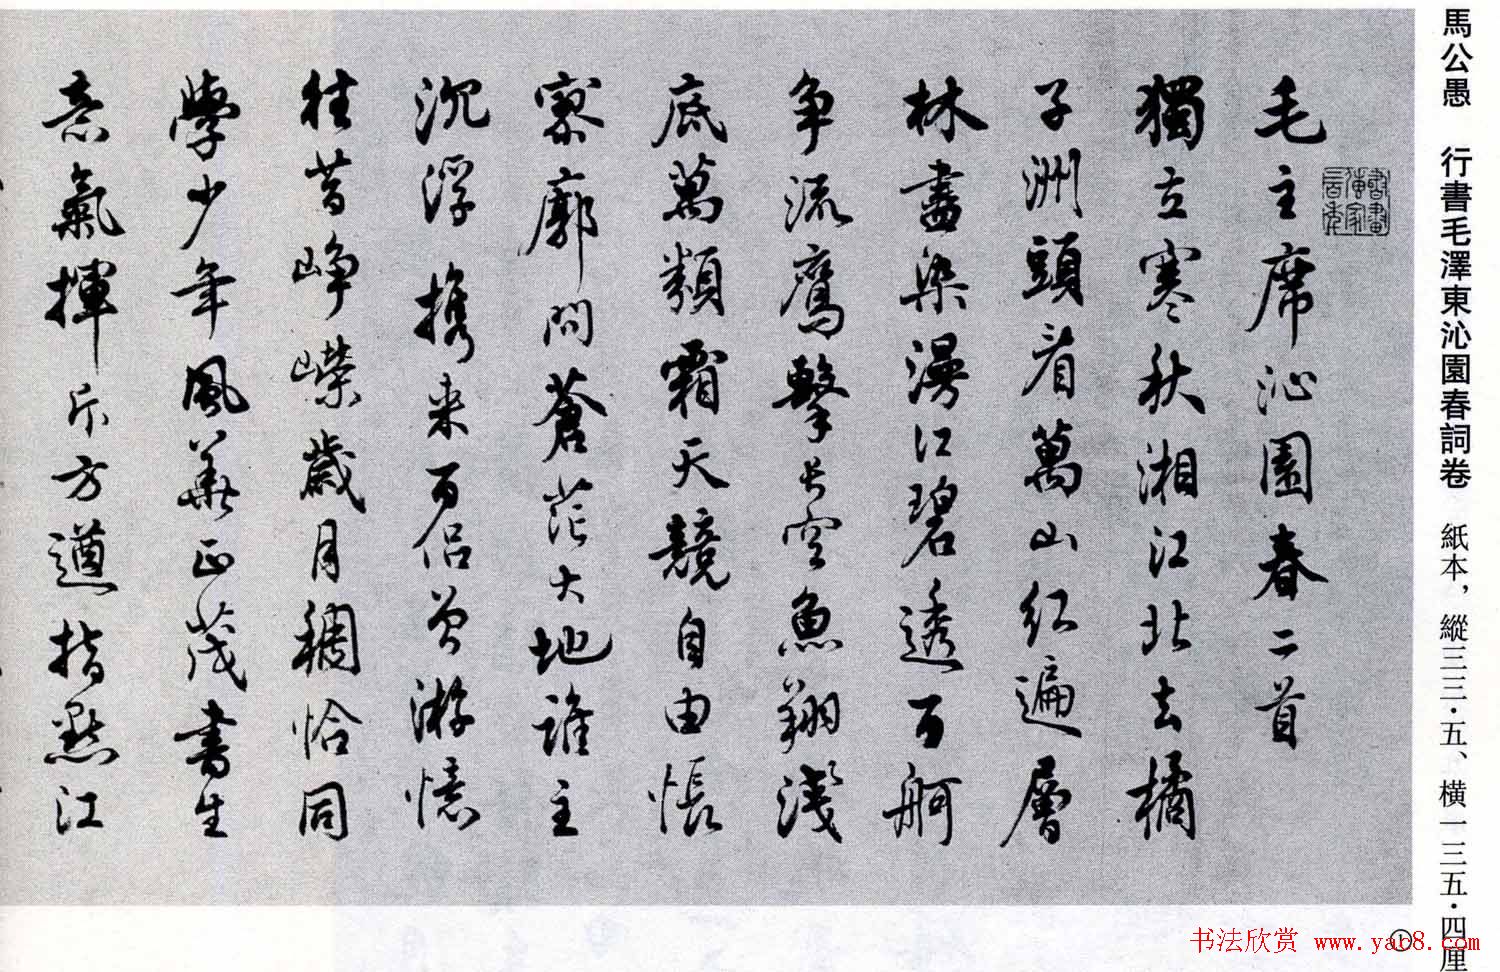 馬公愚　行書毛澤東沁園春詞卷　紙本，縱三三·五、橫一三五·四厘
書畫傳家三百年
毛主席沁園春二首
獨立寒秋湘江北去橘
子洲頭看萬山红遍層
林盡染漫江碧透百舸
争流鷹擊長空魚翔淺
底萬類霜天競自由悵
寥廓問蒼茫大地誰主
沉浮携来百侣曾游憶
往昔崢嶸歲月稠恰同
學少年風華正茂書生
意氣揮斥方遒指點江
书法欣赏 www.yac8.com